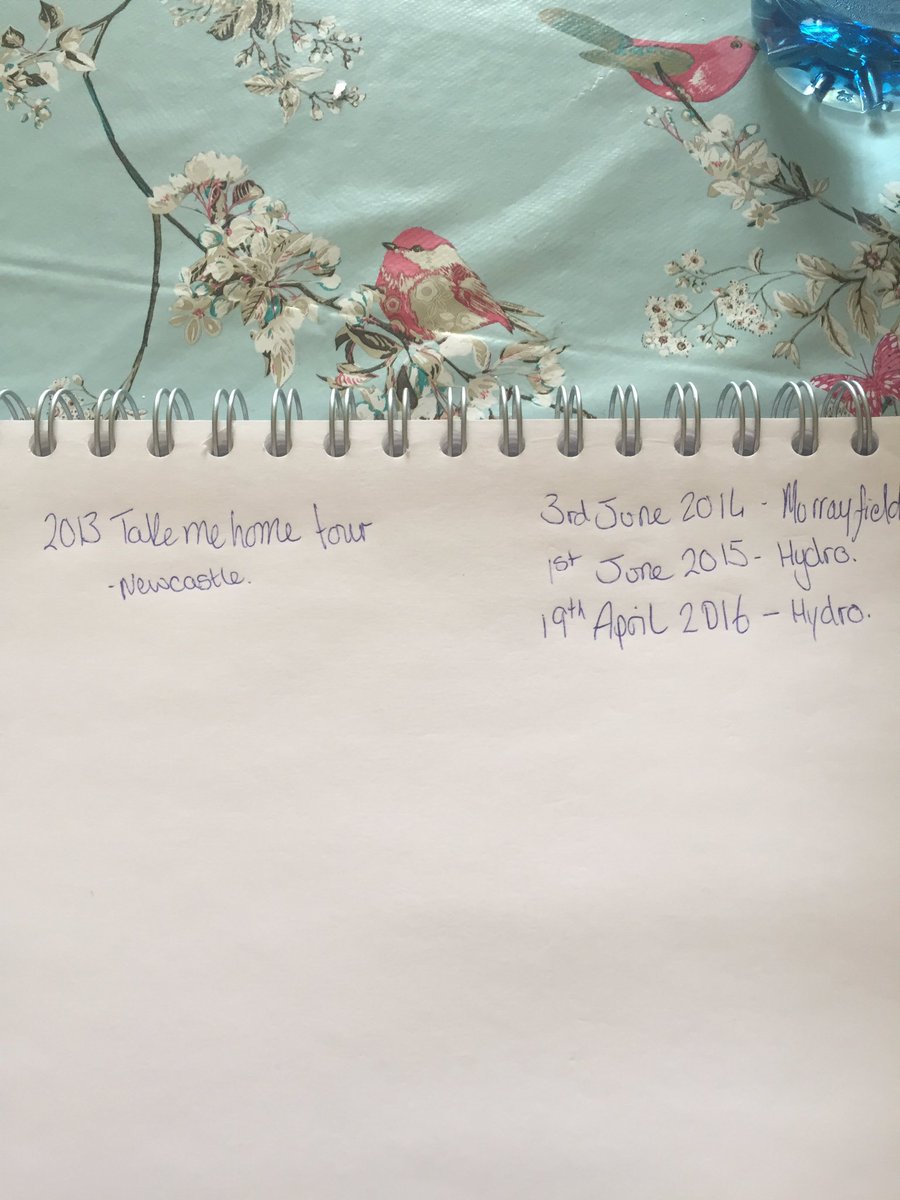 2013 Take me home tour
-Newcastle.
3rd June 2014 - Murrayfield
1st June 2015 - Hydro.
19th April 2016 - Hydro.